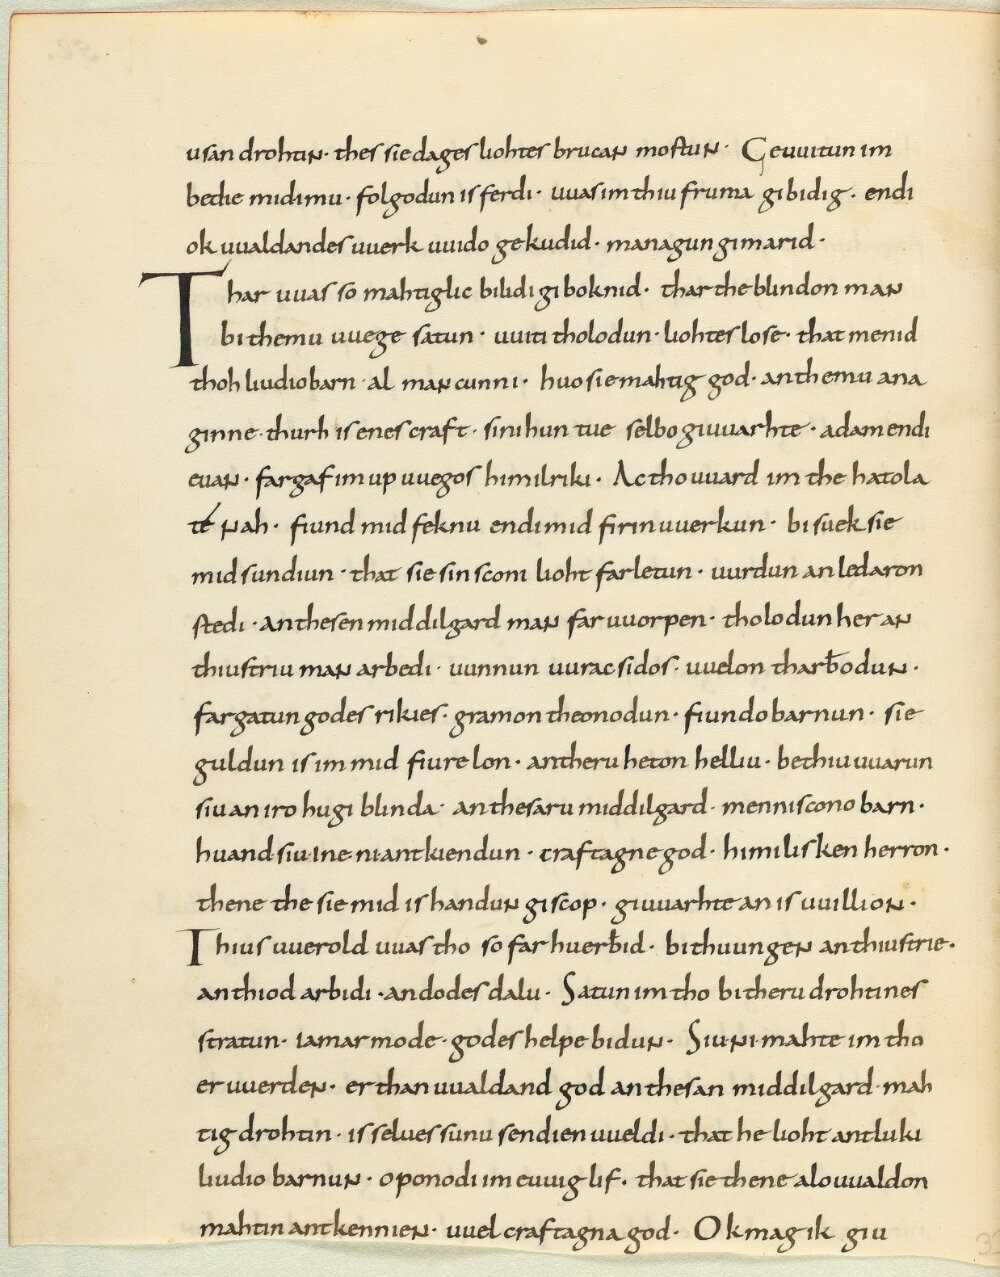 usan drohtin · thes sie dages liohtes brucan mostun · Geuuitun im
bethe mid imu · folgodun is ferdi · uuas im thiu fruma gibidig · endi
ok uualdandes uuerk uuido gekudid · managun gimarid ·
Thar uuas so mahtiglic bilidi giboknid · thar the blindon man
bi themu uuege satun · uuiti tholodun · liohtes lose · that menid
thoh liudio barn · al mancunni · huo sie mahtig god · an themu ana
ginne · thurh is enes craft · sinihun tue selbo giuuarhte · adam endi
euan · fargaf im up uuegos himilriki · Ac tho uuard im the hatola
te nah · fiund mid feknu endi mid firinuuerkun · bisuek sie
mid sundiun · that sie sinsconi lioht farletun · uurdun an ledaron
stedi · an thesen middilgard man faruuorpen · tholodun her an
thiustriu man arbedi · uunnun uuracsidos · uuelon tharƀodun ·
fargatun godes rikies · gramon theonodun · fiundo barnun · sie
guldun is im mid fiure lon · an theru heton helliu · bethiu uuarun
siu an iro hugi blinda · an thesaru middilgard · menniscono barn ·
huand siu ine ni antkiendun · craftagne god · himilisken herron ·
thene the sie mid is handun giscop · giuuarhte an is uuillion ·
Thius uuerold uuas tho so farhuerƀid · bithuungen an thiustrie ·
an thiod arbidi · an dodes dalu · Satun im tho bi theru drohtines
stratun · iamarmode · godes helpe bidun · Siu ni mahte im tho
er uuerden · er than uualdand god an thesan middilgard · mah
tig drohtin · is selues sunu sendien uueldi · that he lioht antluki
liudio barnun · oponodi im euuig lif · that sie thene alouualdon
mahtin antkennien · uuel craftagna god · Ok mag ik giu